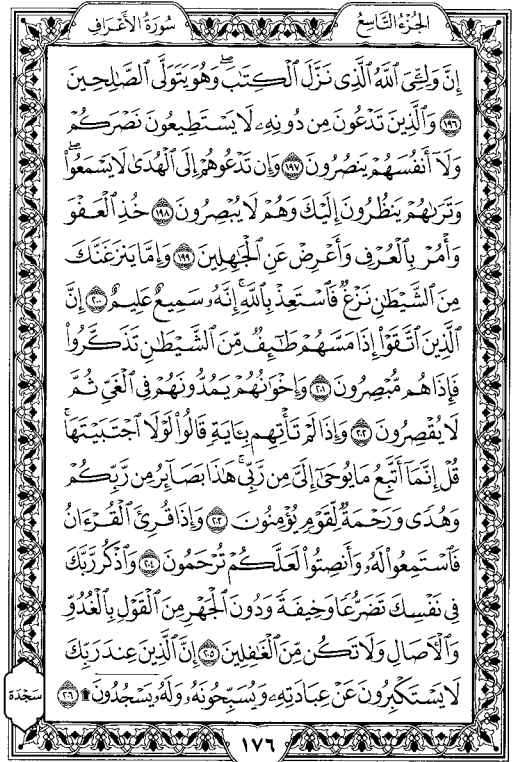 الجزء التاسع
سورة الأعراف
إِنَّ وَلِـِّۧيَ ٱللَّهُ ٱلَّذِي نَزَّلَ ٱلۡكِتَٰبَۖ وَهُوَ يَتَوَلَّى ٱلصَّٰلِحِينَ
١٩٦ وَٱلَّذِينَ تَدۡعُونَ مِن دُونِهِۦ لَا يَسۡتَطِيعُونَ نَصۡرَكُمۡ
وَلَآ أَنفُسَهُمۡ يَنصُرُونَ ١٩٧ وَإِن تَدۡعُوهُمۡ إِلَى ٱلۡهُدَىٰ لَا يَسۡمَعُواْۖ
وَتَرَىٰهُمۡ يَنظُرُونَ إِلَيۡكَ وَهُمۡ لَا يُبۡصِرُونَ ١٩٨ خُذِ ٱلۡعَفۡوَ
وَأۡمُرۡ بِٱلۡعُرۡفِ وَأَعۡرِضۡ عَنِ ٱلۡجَٰهِلِينَ ١٩٩ وَإِمَّا يَنزَغَنَّكَ
مِنَ ٱلشَّيۡطَٰنِ نَزۡغٞ فَٱسۡتَعِذۡ بِٱللَّهِۚ إِنَّهُۥ سَمِيعٌ عَلِيمٌ ٢٠٠ إِنَّ
ٱلَّذِينَ ٱتَّقَوۡاْ إِذَا مَسَّهُمۡ طَٰٓئِفٞ مِّنَ ٱلشَّيۡطَٰنِ تَذَكَّرُواْ
فَإِذَا هُم مُّبۡصِرُونَ ٢٠١ وَإِخۡوَٰنُهُمۡ يَمُدُّونَهُمۡ فِي ٱلۡغَيِّ ثُمَّ
لَا يُقۡصِرُونَ ٢٠٢ وَإِذَا لَمۡ تَأۡتِهِم بِـَٔايَةٖ قَالُواْ لَوۡلَا ٱجۡتَبَيۡتَهَاۚ
قُلۡ إِنَّمَآ أَتَّبِعُ مَا يُوحَىٰٓ إِلَيَّ مِن رَّبِّيۚ هَٰذَا بَصَآئِرُ مِن رَّبِّكُمۡ
وَهُدٗى وَرَحۡمَةٞ لِّقَوۡمٖ يُؤۡمِنُونَ ٢٠٣ وَإِذَا قُرِئَ ٱلۡقُرۡءَانُ
فَٱسۡتَمِعُواْ لَهُۥ وَأَنصِتُواْ لَعَلَّكُمۡ تُرۡحَمُونَ ٢٠٤ وَٱذۡكُر رَّبَّكَ
فِي نَفۡسِكَ تَضَرُّعٗا وَخِيفَةٗ وَدُونَ ٱلۡجَهۡرِ مِنَ ٱلۡقَوۡلِ بِٱلۡغُدُوِّ
وَٱلۡأٓصَالِ وَلَا تَكُن مِّنَ ٱلۡغَٰفِلِينَ ٢٠٥ إِنَّ ٱلَّذِينَ عِندَ رَبِّكَ
لَا يَسۡتَكۡبِرُونَ عَنۡ عِبَادَتِهِۦ وَيُسَبِّحُونَهُۥ وَلَهُۥ يَسۡجُدُونَۤ۩ ٢٠٦
سجدة
١٧٦